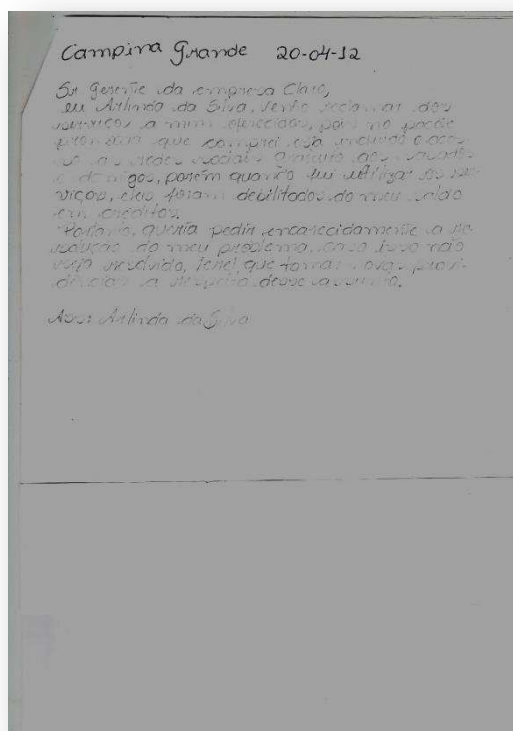 Campina Grande 20-04-12
Sr Gerente da empresa Claro,
eu Arlinda da Silva, venho reclamar dos
serviços a mim oferecidos, pois no pacote
que comprei está incluído o aces-
so as redes sociais gratuito aos sabados
e domigos, porém quando fui utilizar os ser-
viços, eles foram debilitados do meu saldo
em créditos.
Portanto, queria pedir encarecidamente a re-
solução do meu problema caso isso não
seja resolvido, terei que tomar novas provi-
dências a respeito desse assunto.
Ass: Arlinda da Silva